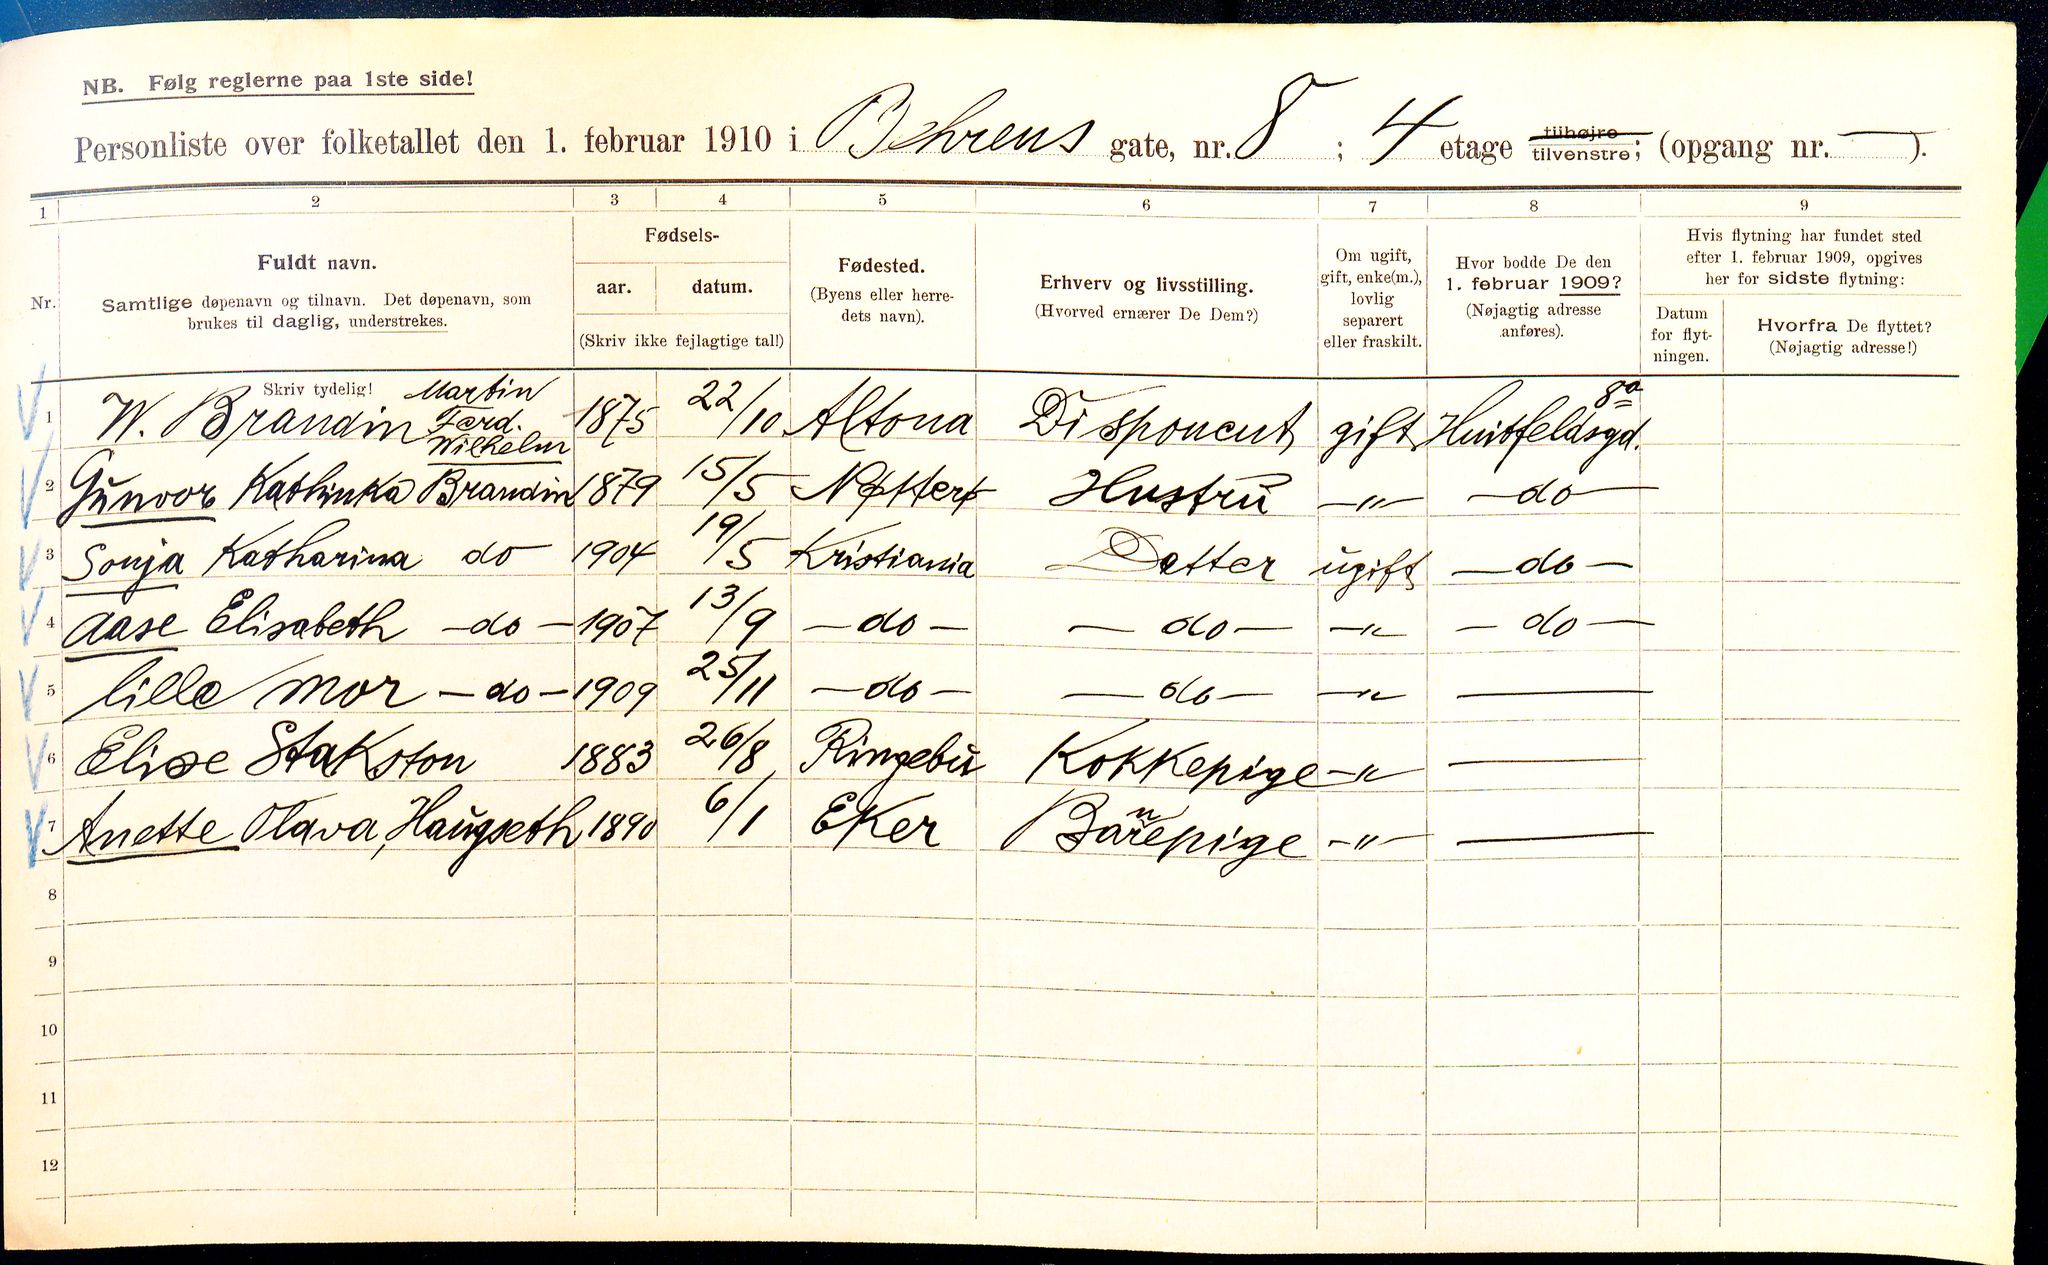 NB. Følg reglerne paa 1ste side!
Personliste over folketallet den 1. februar 1910 i Behrens gate, nr. 8 ; 4 etage tilhøjre tilvenstre; (opgang nr. — ).
1 2 3 4 5 6 7 8 9
Nr.
Fuldt navn.
Samtlige døpenavn og tilnavn. Det døpenavn, som
brukes til daglig, understrekes.
Skriv tydelig!
Fødsels-
aar. datum.
(Skriv ikke fejlagtige tal!)
Fødested.
(Byens eller herre-
dets navn).
Erhverv og livsstilling.
(Hvorved ernærer De Dem?)
Om ugift,
gift, enke(m.),
lovlig
separert
eller fraskilt.
Hvor bodde De den
1. februar 1909?
(Nøjagtig adresse
anføres).
Hvis flytning har fundet sted
efter 1. februar 1909, opgives
her for sidste flytning:
Datum
for flyt-
ningen.
Hvorfra De flyttet?
(Nøjagtig adresse!)
1 W. Brandin Martin Ferd. Wilhelm 1875 22/10 Altona Disponent gift Huitfeldsgd. 8a
2 Gunvor Kathinka Brandin 1879 15/5 Nøtterø Hustru —"— —do—
3 Sonja Katharina do 1904 19/5 Kristiania Datter ugift —do—
4 Aase Elisabeth —do— 1907 13/9 —do— —do— —"— —do—
5 lille mor —do— 1909 25/11 —do— —do— —"— —
6 Elise Stakston 1883 26/8 Ringebu Kokkepige —"— —
7 Anette Olava, Haugseth 1890 6/1 Eker Barnepige —"— —
8
9
10
11
12